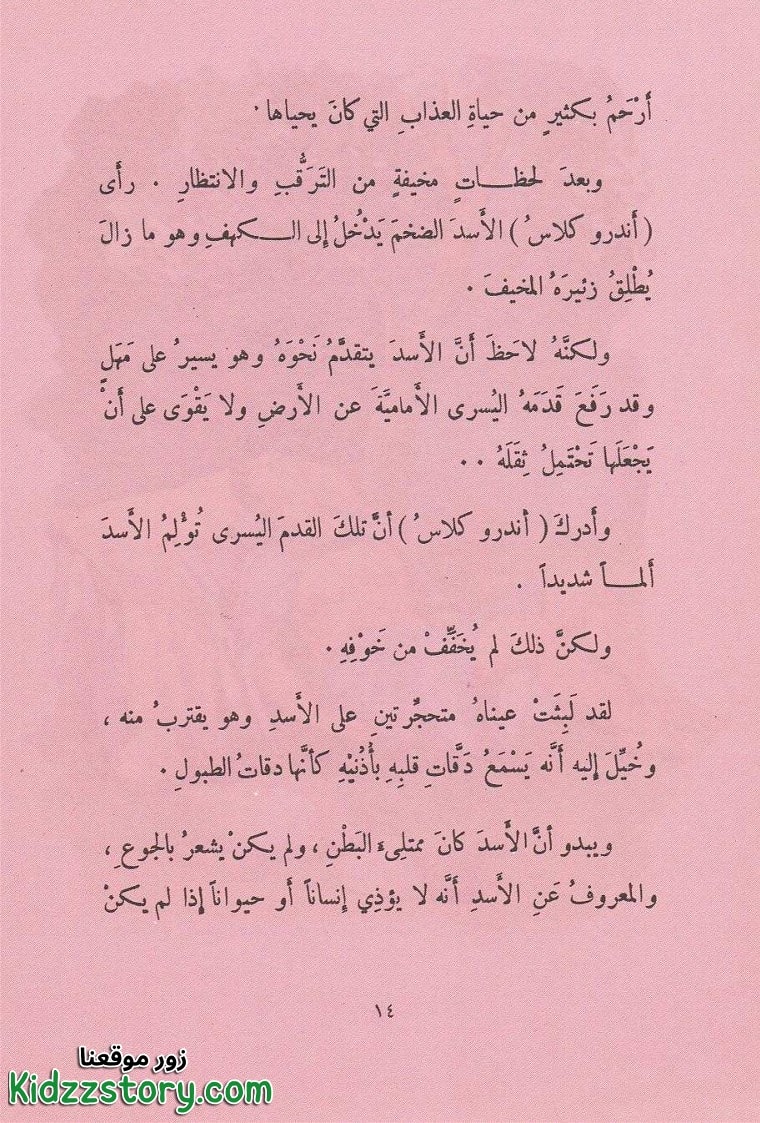 أَرْحَمُ بكثيرٍ من حياةِ العذابِ التي كانَ يحياها .
وبعدَ لحظاتٍ مخيفةٍ من التَرَقُّبِ والانتظارِ . رأَى
( أندرو كلاسُ ) الأَسدَ الضخمَ يَدْخُلُ إلى الكهفِ وهو ما زالَ
يُطْلِقُ زئيرَهُ المخيفَ .
ولكنَّهُ لاحَظَ أَنَّ الأَسدَ يتقدَّمُ نَحْوَهُ وهو يسيرُ على مَهَلٍ
وقد رَفَعَ قَدَمَهُ اليُسرى الأَماميَّةَ عن الأَرضِ ولا يَقْوَى على أَنْ
يَجْعَلَها تَحْتَمِلُ ثِقَلَهُ . .
وأَدركَ ( أندرو كلاسُ ) أنَّ تلكَ القدمَ اليُسرى تُؤْلِمُ الأَسدَ
أَلماً شديداً .
ولكنَّ ذلكَ لم يُخَفِّفْ من خَوْفِهِ .
لقد لَبِثَتْ عيناهُ متحجِّرتينِ على الأَسدِ وهو يقتربُ منه ،
وخُيِّلَ إليه أَنَّه يَسْمَعُ دَقَّاتِ قلبِهِ بأُذُنَيْهِ كأنَّها دقاتُ الطبولِ .
ويبدو أنَّ الأَسدَ كانَ ممتلِىءَ البَطْنِ ، ولم يكنْ يشعرُ بالجوعِ ،
والمعروفُ عَنِ الأَسدِ أَنَّه لا يؤذِي إنساناً أَو حيواناً إذا لم يكنْ
١٤
زور موقعنا
Kidzzstory.com